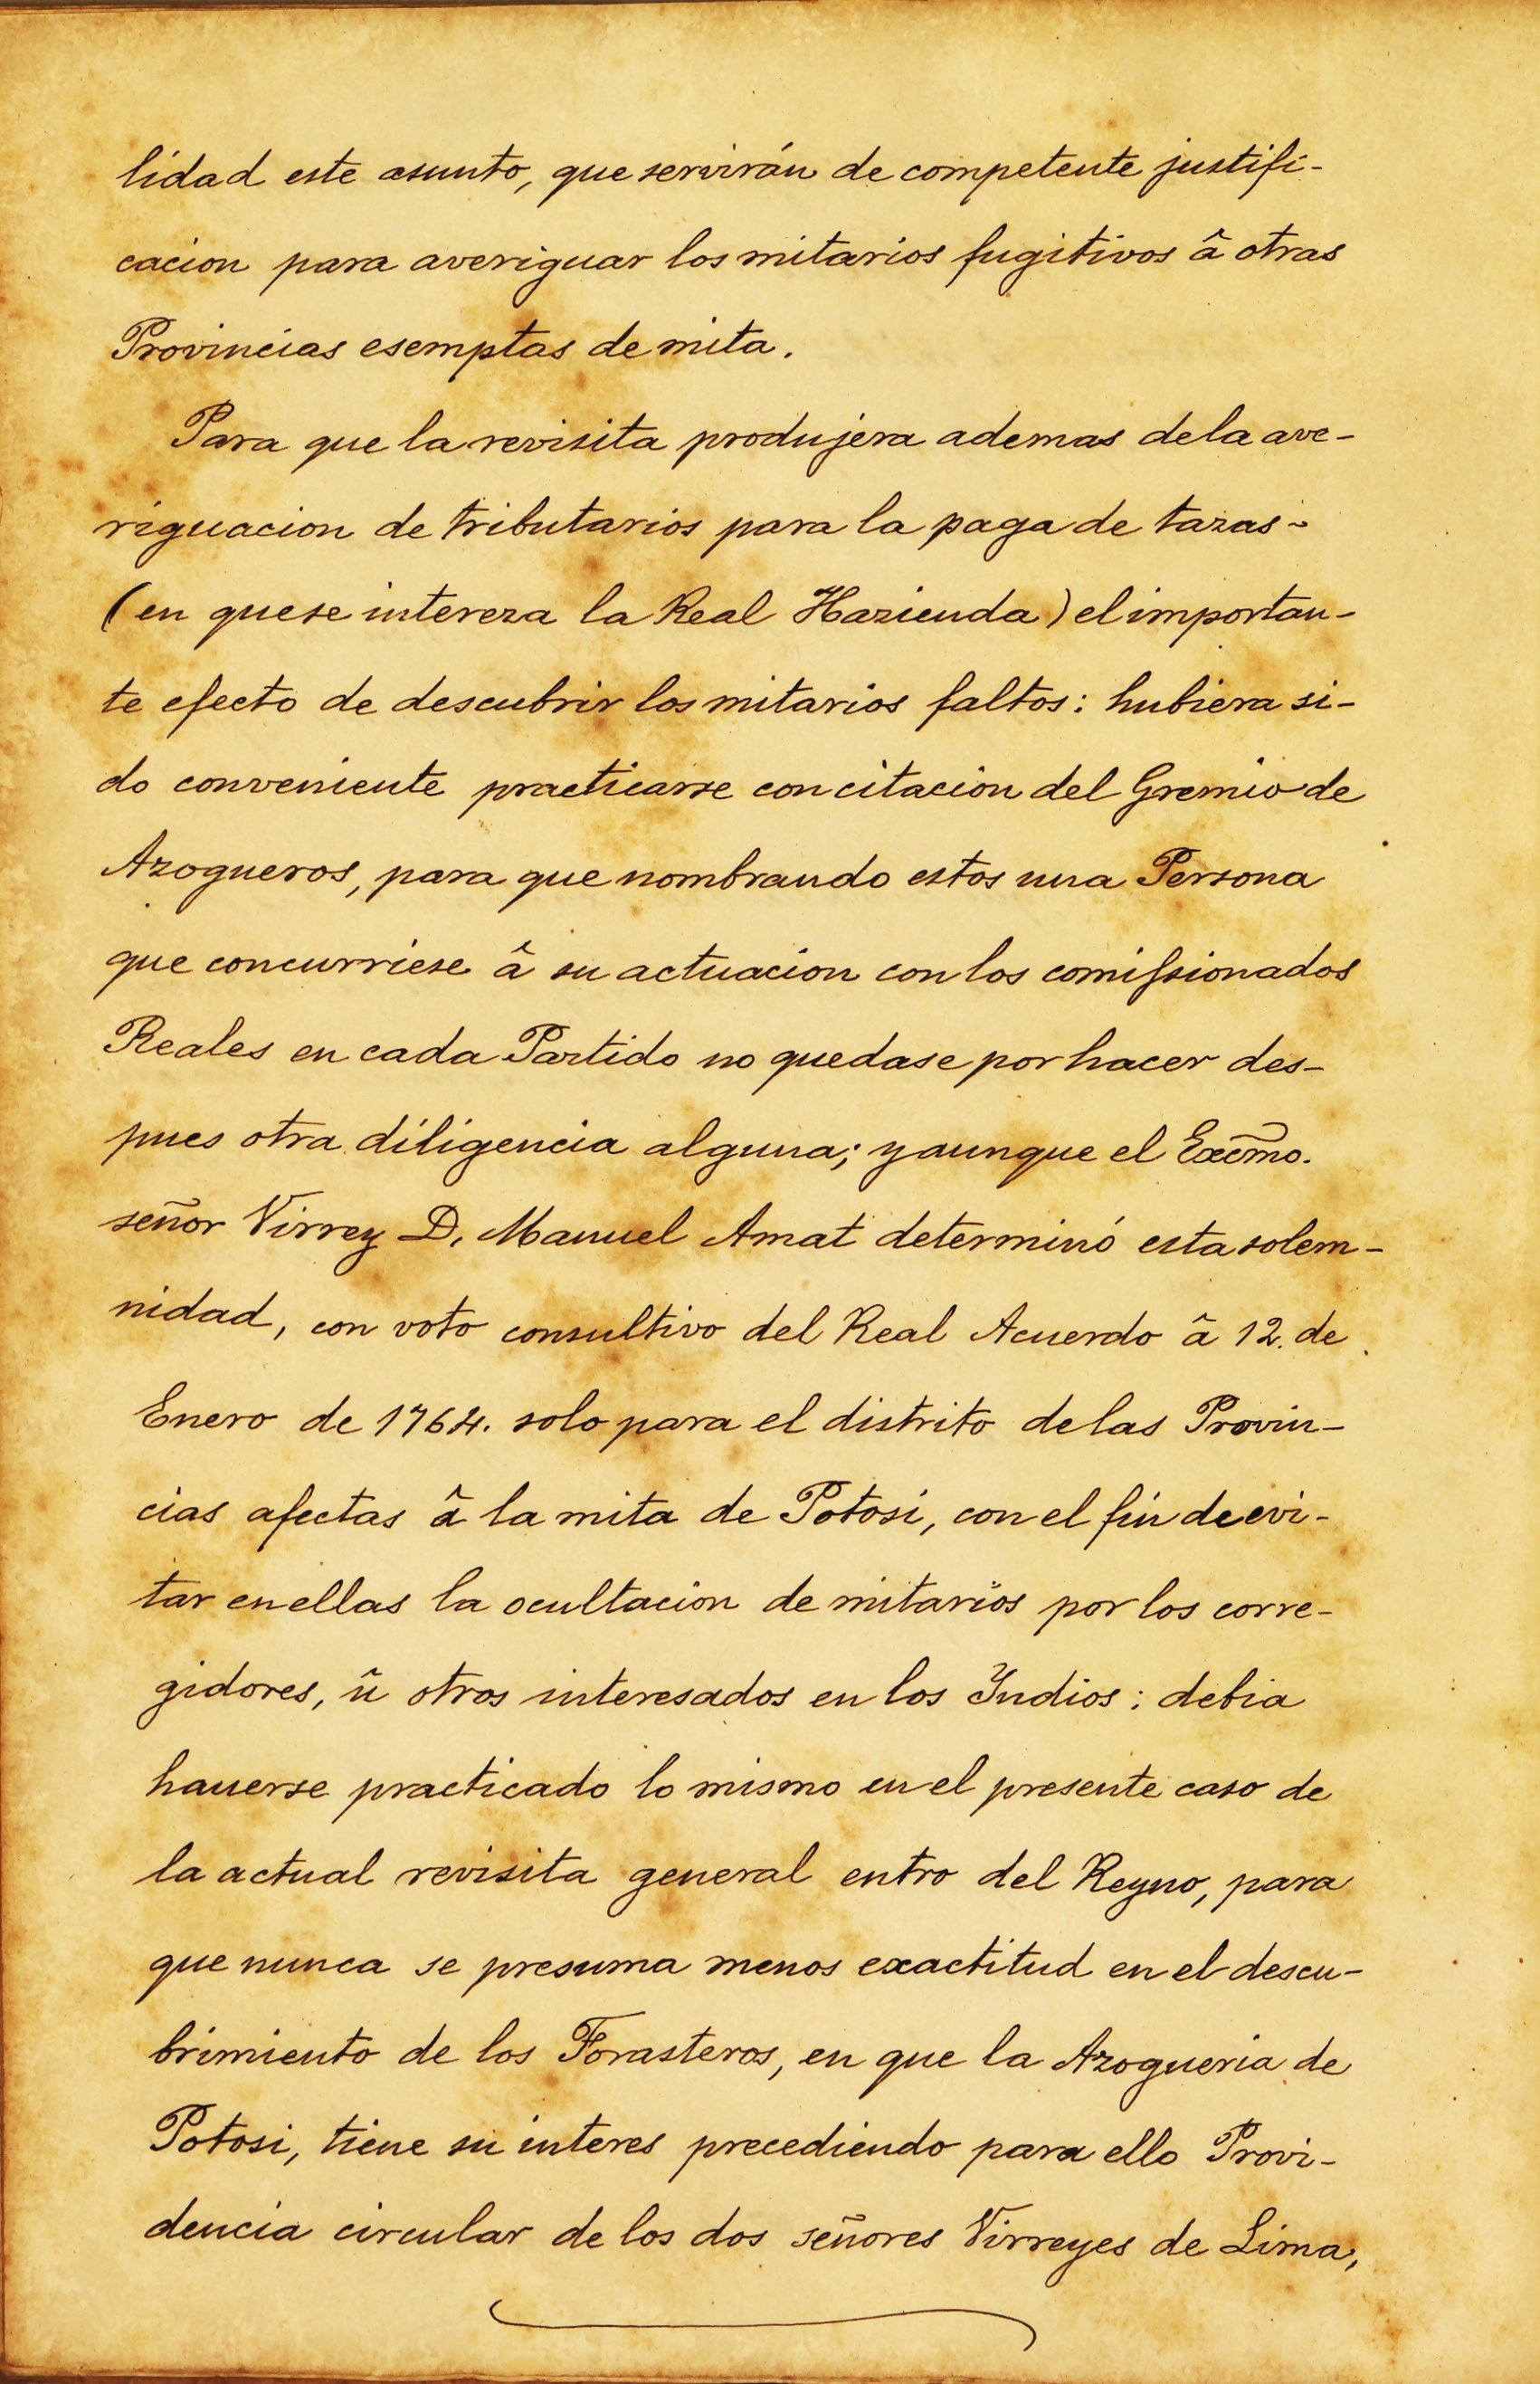 lidad este asunto, que servirán de competente justifi-
cacion para averiguar los mitarios fugitivos â otras
Provincias esemptas de mita.
Para que la revisita produjera ademas de la ave-
riguacion de tributarios para la paga de tazas-
(en que se intereza la Real Hazienda) el importan-
te efecto de descubrir los mitarios faltos: hubiera si-
do conveniente practicarse con citacion del Gremio de
Azogueros, para que nombrando estos una Persona
que concurriese â su actuacion con los comifsionados
Reales en cada Partido no quedase por hacer des-
pues otra diligencia alguna; y aunque el Excm̃o.
señor Virrey D. Manuel Amat determinó esta solem-
nidad, con voto consultivo del Real Acuerdo â 12. de
Enero de 1764. solo para el distrito de las Provin-
cias afectas â la mita de Potosi, con el fin de evi-
tar en ellas la ocultacion de mitarios por los corre-
gidores, û otros interesados en los Yndios: debia
hauerse practicado lo mismo en el presente caso de
la actual revisita general entro del Reyno, para
que nunca se presuma menos exactitud en el descu-
brimiento de los Forasteros, en que la Azogueria de
Potosi, tiene su interes precediendo para ello Provi-
dencia circular de los dos señores Virreyes de Lima,